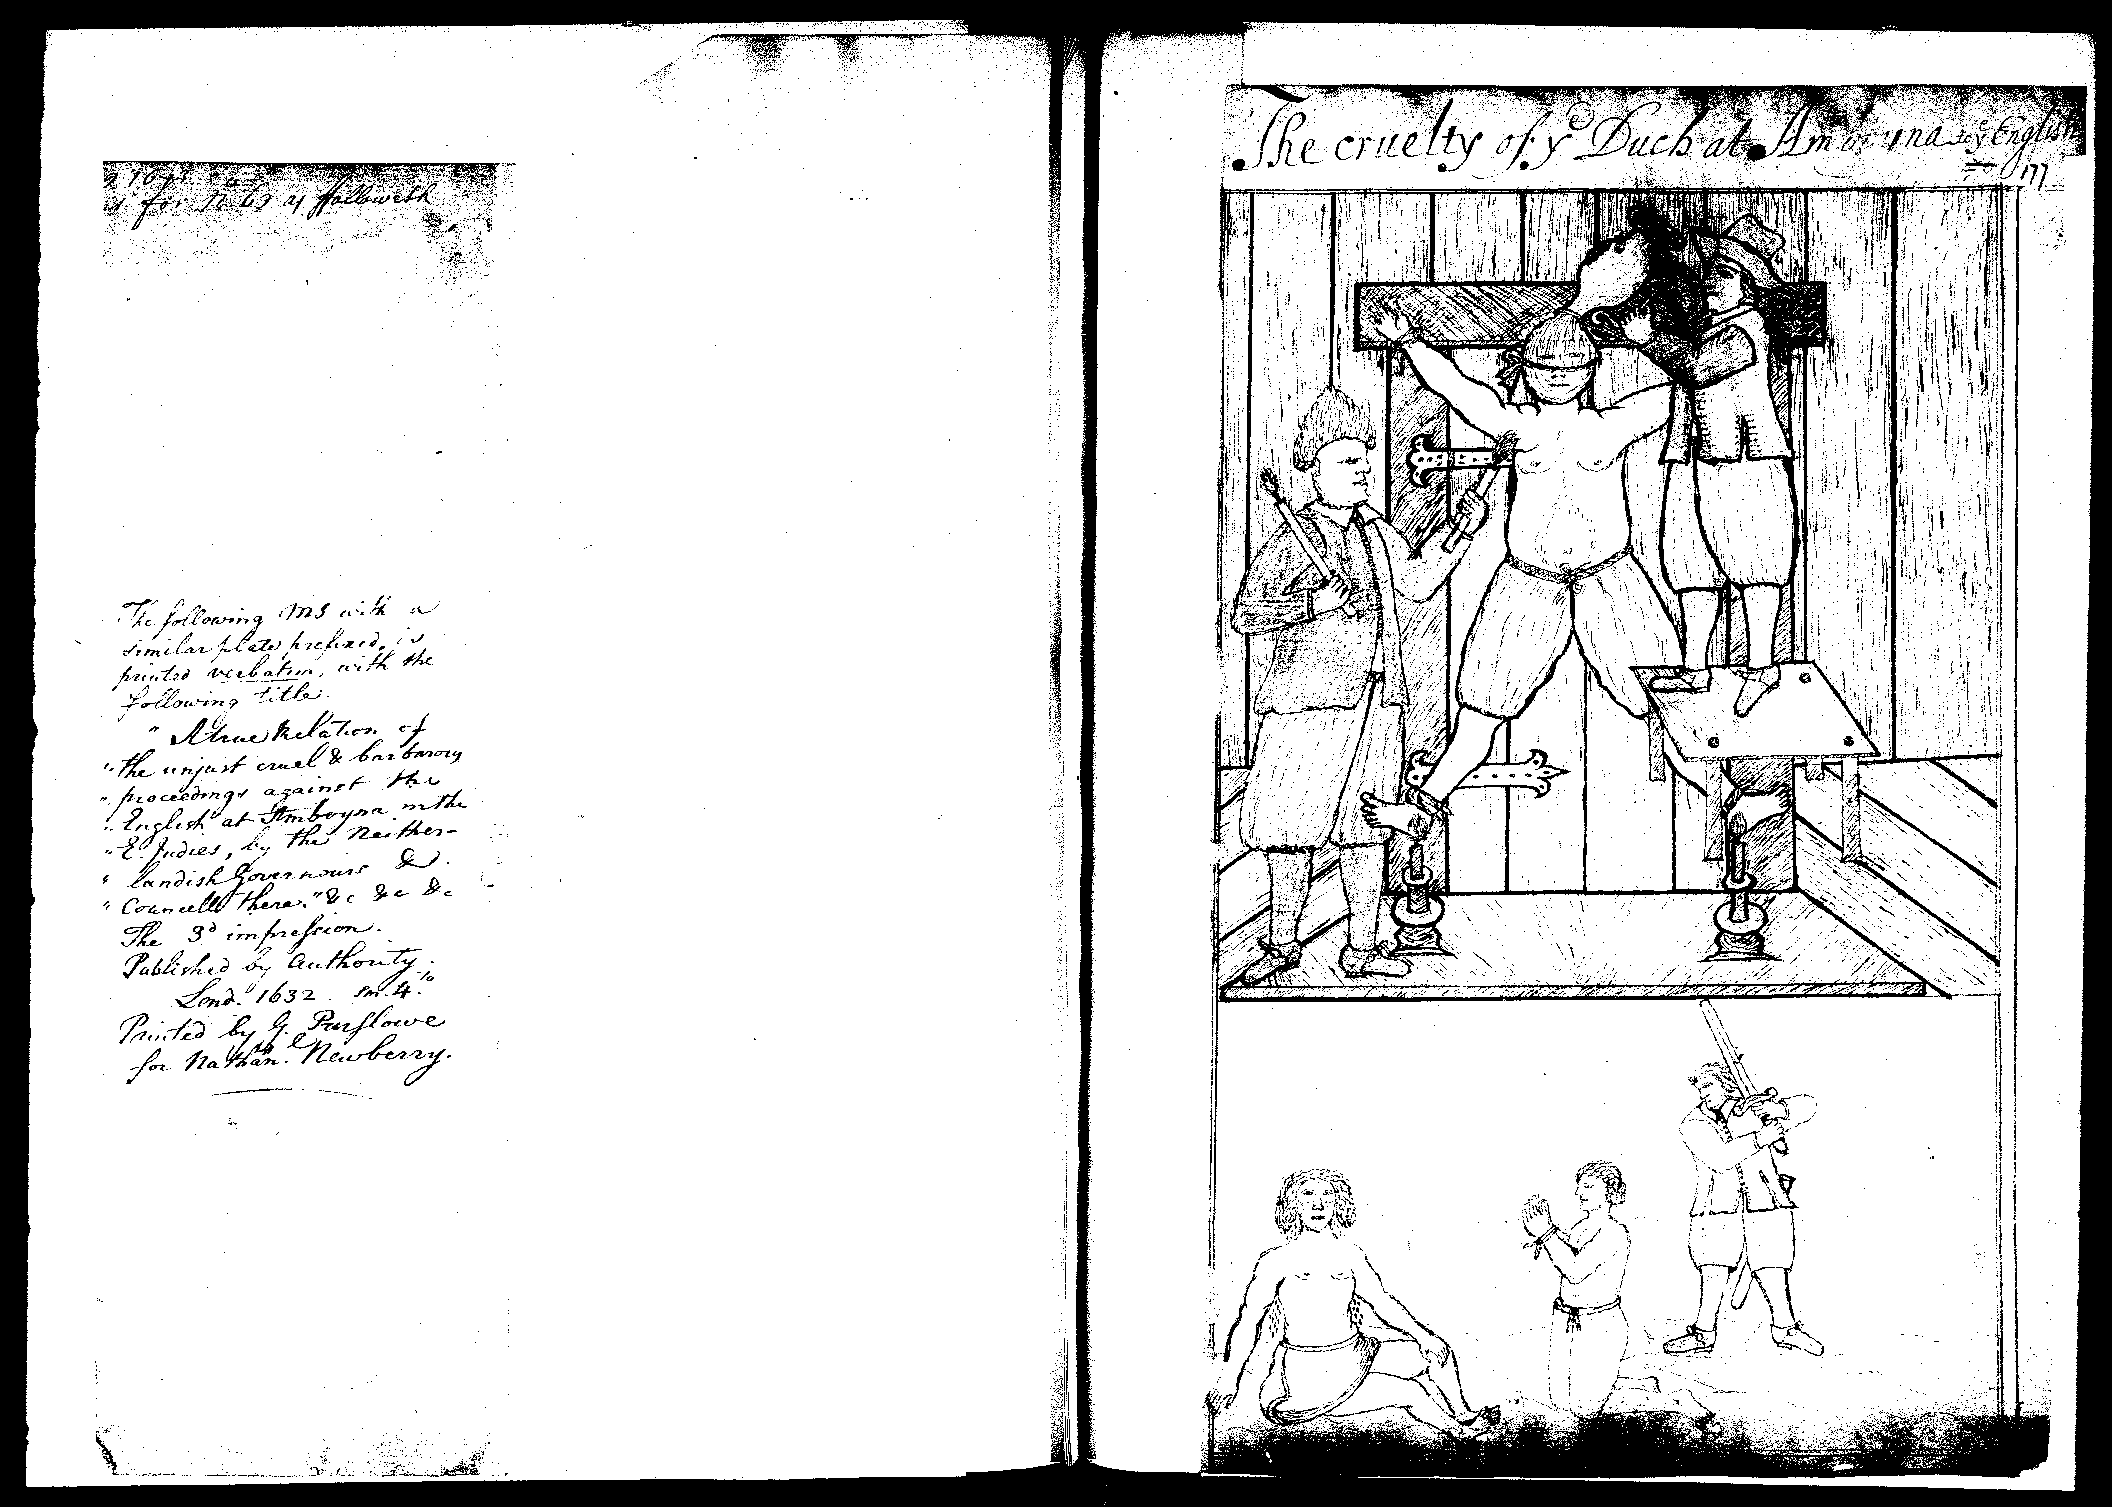 for as followeth
The following MS with a
similar plate prefixed, is
printed verbatim, with the
following title.
" A true Relation of
" the unjust cruel & barbarous
" proceedings against the
" English at Amboyna in the
" E. Indies, by the Neither-
" landish Governours &
" Councell there." &c &c &c
The 3d impression.
Published by Authority.
Lond. 1632 sm. 4.to
Printed by G. Purslowe
for Nathan.l Newberry.
The cruelty of ye Duch at Amboyna to ye English